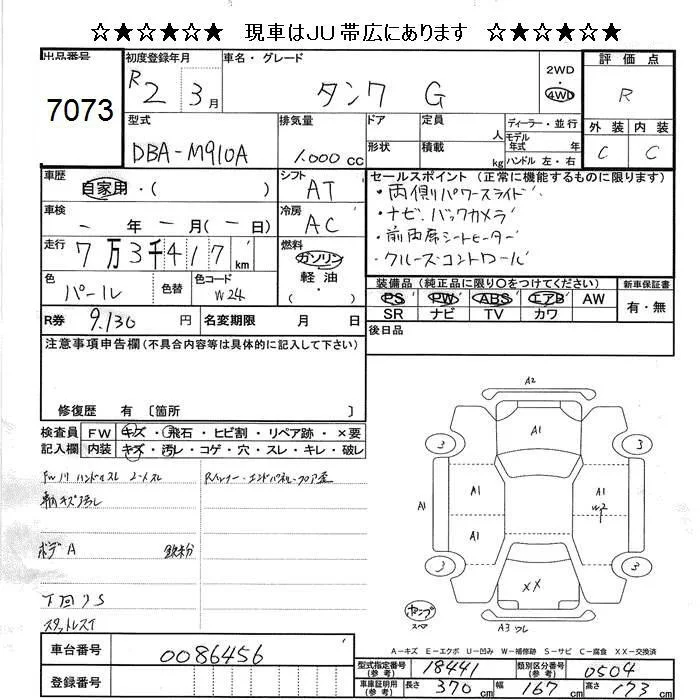 ☆★☆★☆★ 現車はJU 帯広にあります ☆★☆★☆★
出品番号
7073
初度登録年月
R2 3月
車名・グレード
タンク G
2WD
・
4WD
評価点
R
型式
DBA-M910A
排気量
1.000 cc
ドア
形状
定員
人
積載
kg
ディーラー・並行
モデル
年式 年
ハンドル 左・右
外装 内装
C C
車歴
自家用・( )
シフト
AT
セールスポイント (正常に機能するものに限ります)
・両側パワースライド
・ナビ、バックカメラ
・前両席シートヒーター
・クルーズコントロール
車検
- 年 - 月(- 日)
冷房
AC
走行
7万3千417km
燃料
ガソリン
・
軽油
・
( )
色
パール
色替
色コード
W24
装備品 (純正品に限り○をつけてください)
PS PW ABS エアB AW
SR ナビ TV カワ
新車保証書
有・無
R券 9.130 円
名変期限 月 日
後日品
注意事項申告欄(不具合内容等は具体的に記入して下さい)
修復歴 有 〔箇所 〕
検査員
記入欄
FW キズ・飛石・ヒビ割・リペア跡・×要
内装 キズ・汚レ・コゲ・穴・スレ・キレ・破レ
ボデーA 鉄粉
下回りS
スタットレスT
A2
A1
3 3
A1 A1 A1
W2
A1
3 3
XX
テンプ
スペア
A3 ワレ
A-キズ E-エクボ U-凹み W-補修跡 S-サビ C-腐食 XX-交換済
車台番号 0086456
登録番号
型式指定番号
(参考)
18441
類別区分番号
(参考)
0504
車庫証明用
(参考)
長さ 370cm 幅 167cm 高さ 173cm